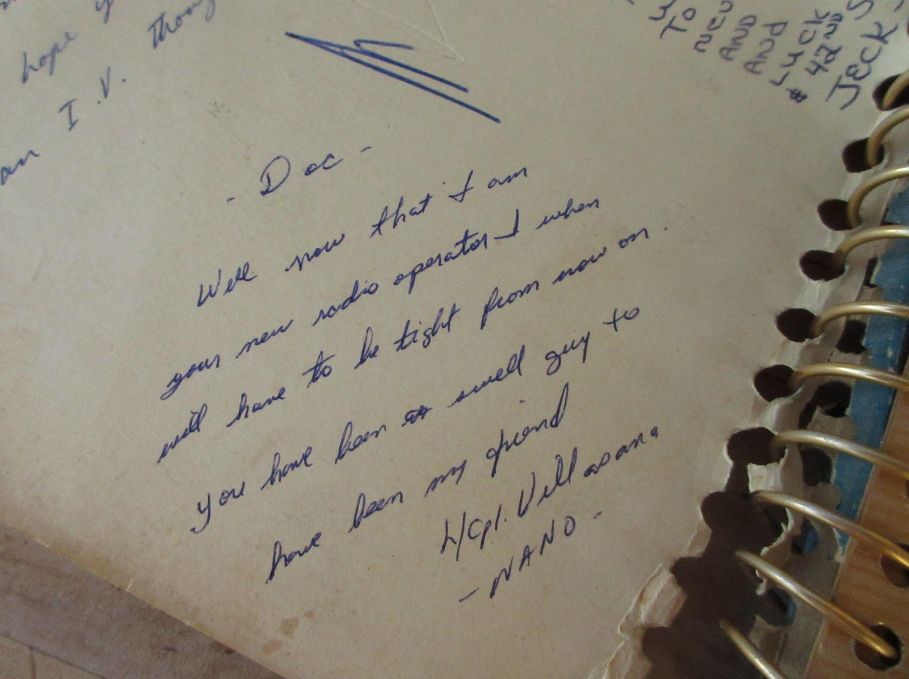 hope
an I.V.
TO
AND
AND
LUCK
$ 42ND
JECK
- Doc -
Well now that I am
your new radio operator I when
will have to be tight from now on.
you have been as swell guy to
have been my friend
L/Cpl. Villasana
- NANO -